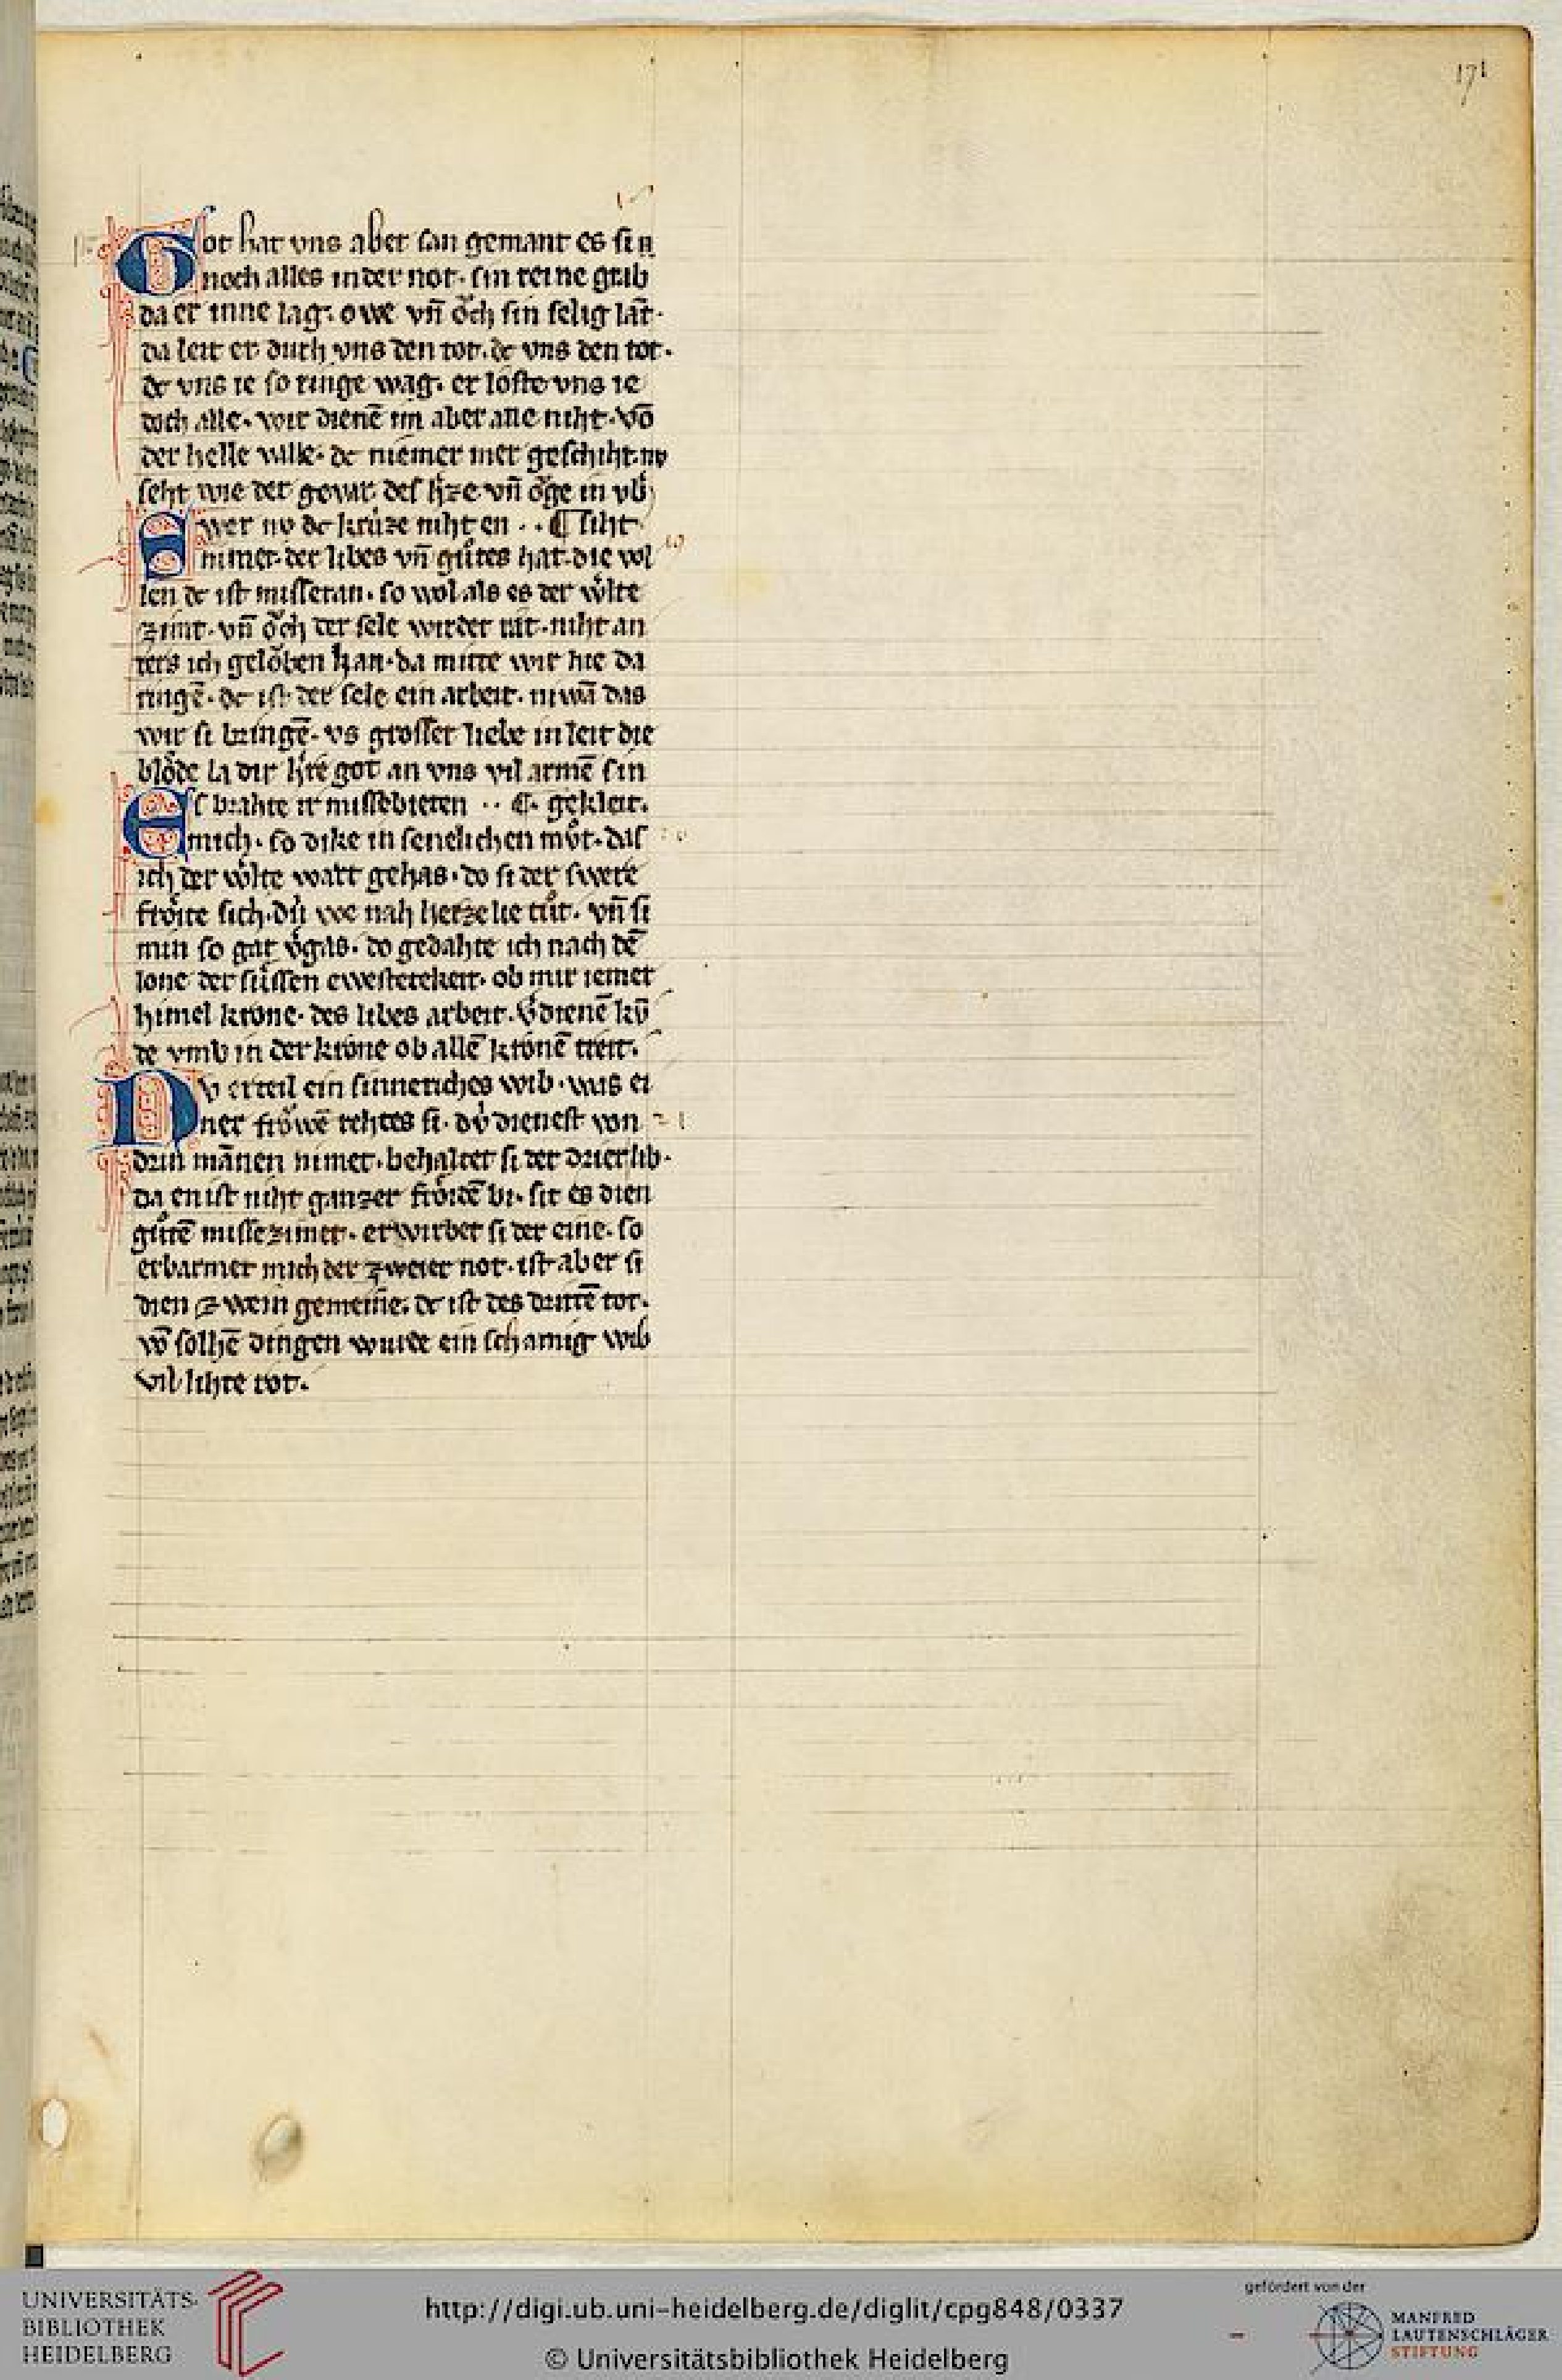 171
Got hat vns aber san gemant es sin
noch alles in der not. sin reine grab
da er inne lag. owe vn̄ oͮch sin selig lāt.
da leit er durch vns den tot. dc vns den tot.
dc vns ie so ringe wag. er loste vns ie
doch alle. wir dienē im aber alle niht. vō
der helle valle. dc niemer mer geschiht. nv
seht wie der gewar des h̾ze vn̄ oͮge in vb̾
Swer nv dc krúze niht en .. ¶ siht
nimet. der libes vn̄ guͦtes hat. die wl
len dc ist missetan. so wol als es der wͤlte
zimt. vn̄ oͮch der sele wirder rat. niht an
ders ich geloͮben han. da mitte wir hie da
ringē. dc ist der sele ein arbeit. niwā das
wir si bringē. vs grosser liebe in leit die
bloͤde la dir h̾re got an vns vil armē sin
Es brahte ir missebieten .. ¶. gekleit.
mich. so dike in senelichen mvͦt. das
ich der wͤlte wart gehas. do si der swere
froͤite sich. dú we nah herzelie tuͦt. vn̄ si
min so gar v̾gas. do gedahte ich nach dē
lone der suͤssen ewesterekeit. ob mir iemer
himel krone. des libes arbeit. v̾dienē kv̄
de vmb in der krone ob allē kronē treit.
Nv erteil ein sinneriches wib. was ei
ner froͮwē rehtes si. dv́ dienest von
drin mānen nimet. behaltet si der drier lib.
da en ist niht ganzer froͤidē bi. sit es dien
guͦtē missezimet. erwirbet si der eine. so
erbarmet mich der zweier not. ist aber si
dien zwein gemeine. dc ist des drittē tot.
vō solhē dingen wurde ein schamig wib
vil lihte rot.
UNIVERSITÄTS-
BIBLIOTHEK
HEIDELBERG
http://digi.ub.uni-heidelberg.de/diglit/cpg848/0337
© Universitätsbibliothek Heidelberg
gefördert von der
MANFRED
LAUTENSCHLÄGER
STIFTUNG